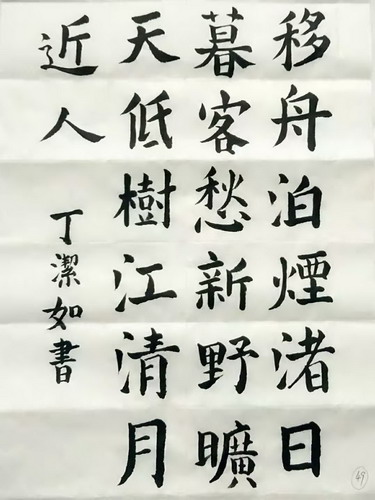 移舟泊煙渚日
暮客愁新野曠
天低樹江清月
近人
丁潔如書
49